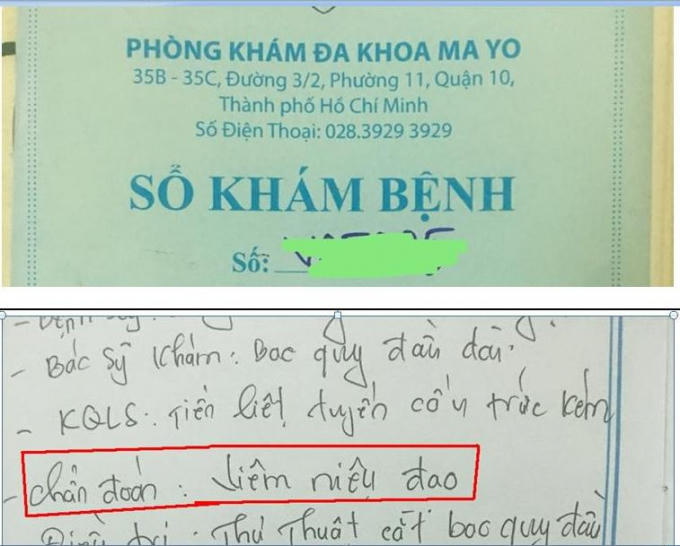 PHÒNG KHÁM ĐA KHOA MA YO
35B - 35C, Đường 3/2, Phường 11, Quận 10,
Thành phố Hồ Chí Minh
Số Điện Thoại: 028.3929 3929
SỔ KHÁM BỆNH
Số:
- Bác sỹ khám: Bao quy đầu dài.
- KQLS: Tiền liệt tuyến cấu trúc kém
- Chẩn đoán: Viêm niệu đạo
Điều trị: Thủ Thuật cắt bao quy đầu